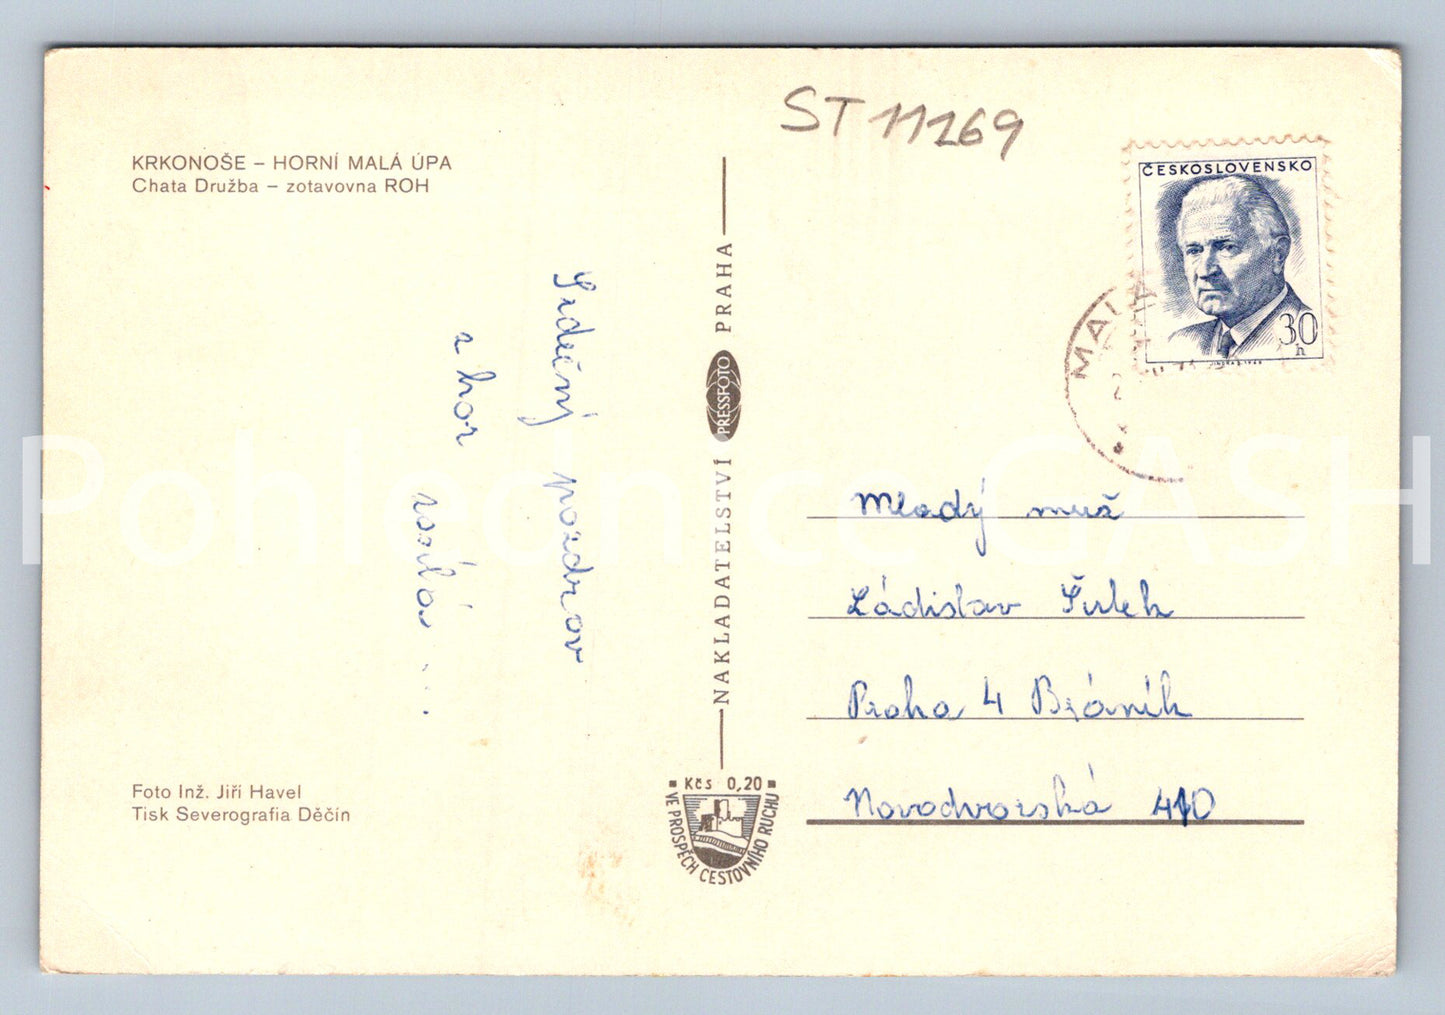 ST 11269
KRKONOŠE – HORNÍ MALÁ ÚPA
Chata Družba – zotavovna ROH
ČESKOSLOVENSKO
30
h
MALÁ
Srdečný pozdrav
z hor
zasílá ...
NAKLADATELSTVÍ PRESSFOTO PRAHA
Mladý muž
Ládislav
Praha 4 Bráník
Novodvorská 410
Foto Inž. Jiří Havel
Tisk Severografia Děčín
Kčs 0,20
VE PROSPĚCH CESTOVNÍHO RUCHU
Pohlednice GASH